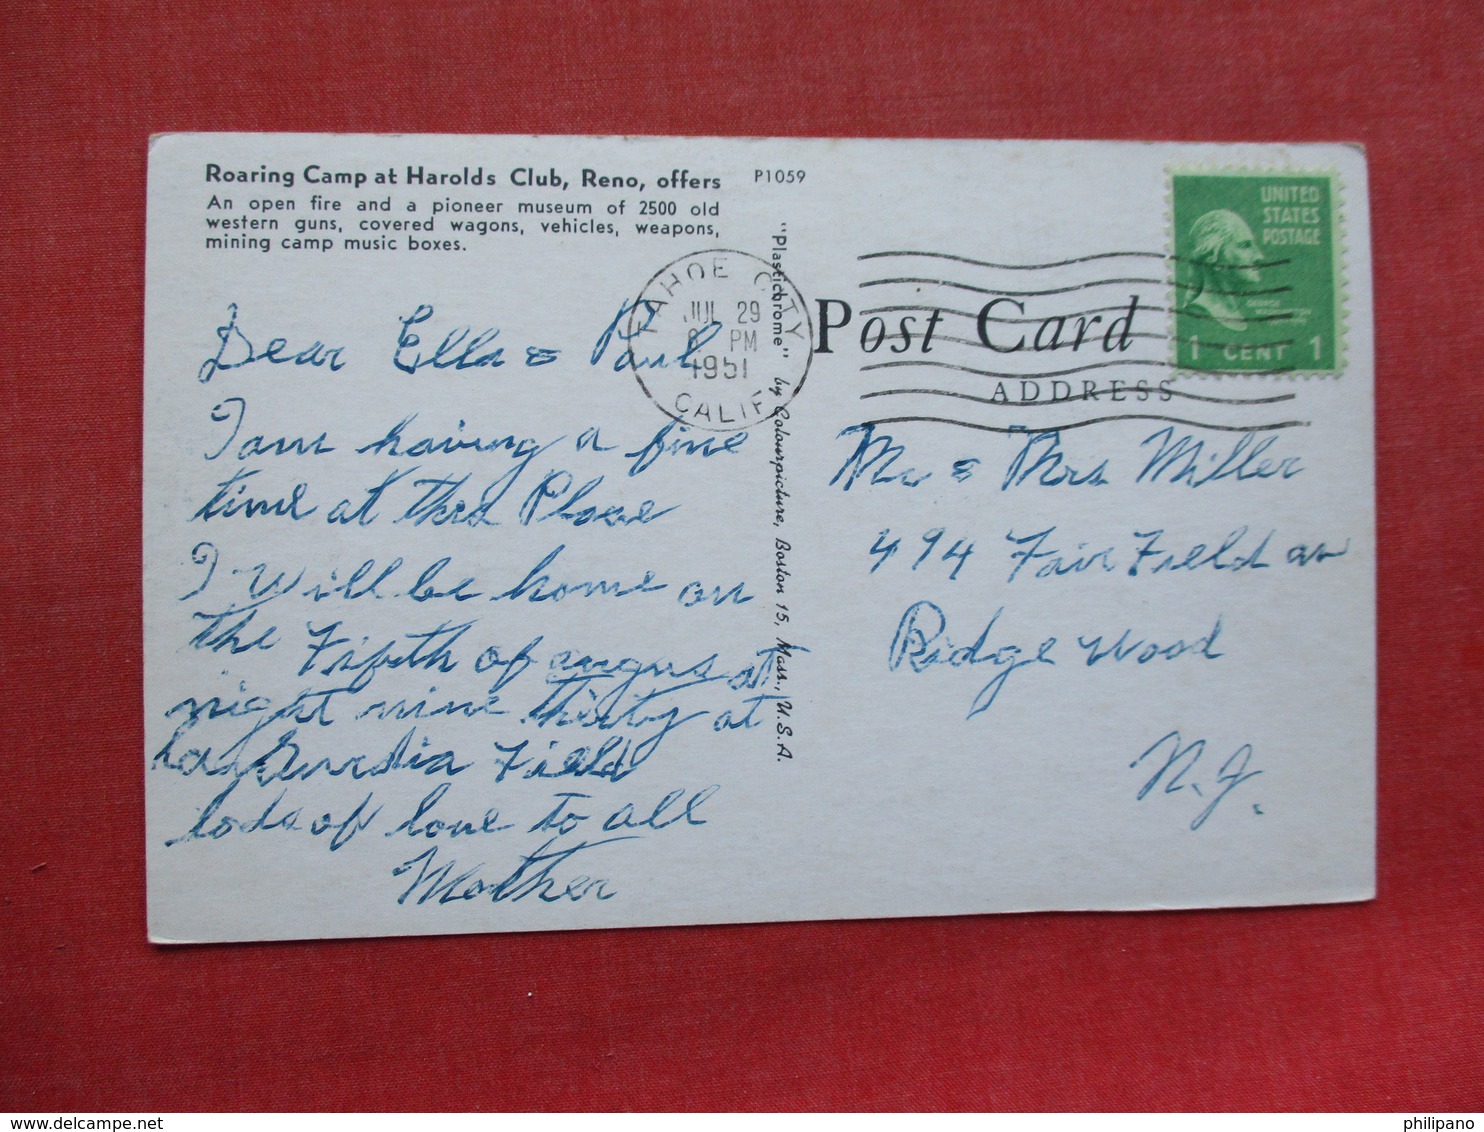 Roaring Camp at Harolds Club, Reno, offers
An open fire and a pioneer museum of 2500 old
western guns, covered wagons, vehicles, weapons,
mining camp music boxes.
P1059
Dear Ella & Paul
I am having a fine
time at this Place
I will be home on
the Fifth of augus at
night nine thirty at
La Guardia Field
lods of love to all
Mother
"Plastichrome" by Colourpicture, Boston 15, Mass., U.S.A.
TAHOE CITY
JUL 29
PM
1951
CALIF
UNITED
STATES
POSTAGE
GEORGE
WASHINGTON
1 CENT 1
Post Card
ADDRESS
Mr & Mrs Miller
494 Fair Field av
Ridge wood
N.J.
Don't copy without permission
philipano